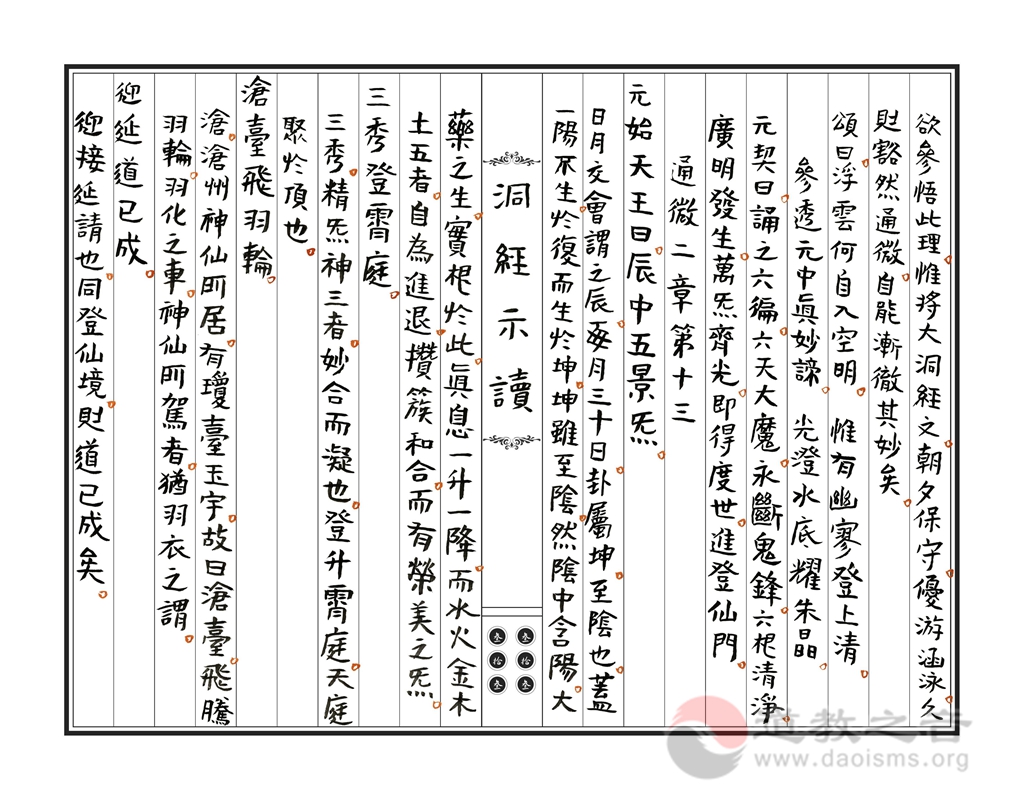 欲參悟此理惟將大洞經文朝夕保守優游涵泳久
則豁然通微自能漸徹其妙矣
頌曰浮雲何自入空明 惟有幽寥登上清
參透元中眞妙諦 光澄水底耀朱晶
元契曰誦之六徧六天大魔永斷鬼鋒六根清淨
廣明發生萬炁齊光即得度世進登仙門
通微二章第十三
元始天王曰辰中五景炁
日月交會謂之辰每月三十日卦屬坤至陰也蓋
一陽不生於復而生於坤坤雖至陰然陰中含陽大
洞經示讀
叁 叁
拾 拾
叁 叁
藥之生實根於此眞息一升一降而水火金木
土五者自為進退攢簇和合而有榮美之炁
三秀登霄庭
三秀精炁神三者妙合而凝也登升霄庭天庭
聚於頂也
滄臺飛羽輪
滄滄州神仙所居有瓊臺玉宇故曰滄臺飛騰
羽輪羽化之車神仙所駕者猶羽衣之謂
迎延道已成
迎接延請也同登仙境則道已成矣
道教之音
www.daoisms.org